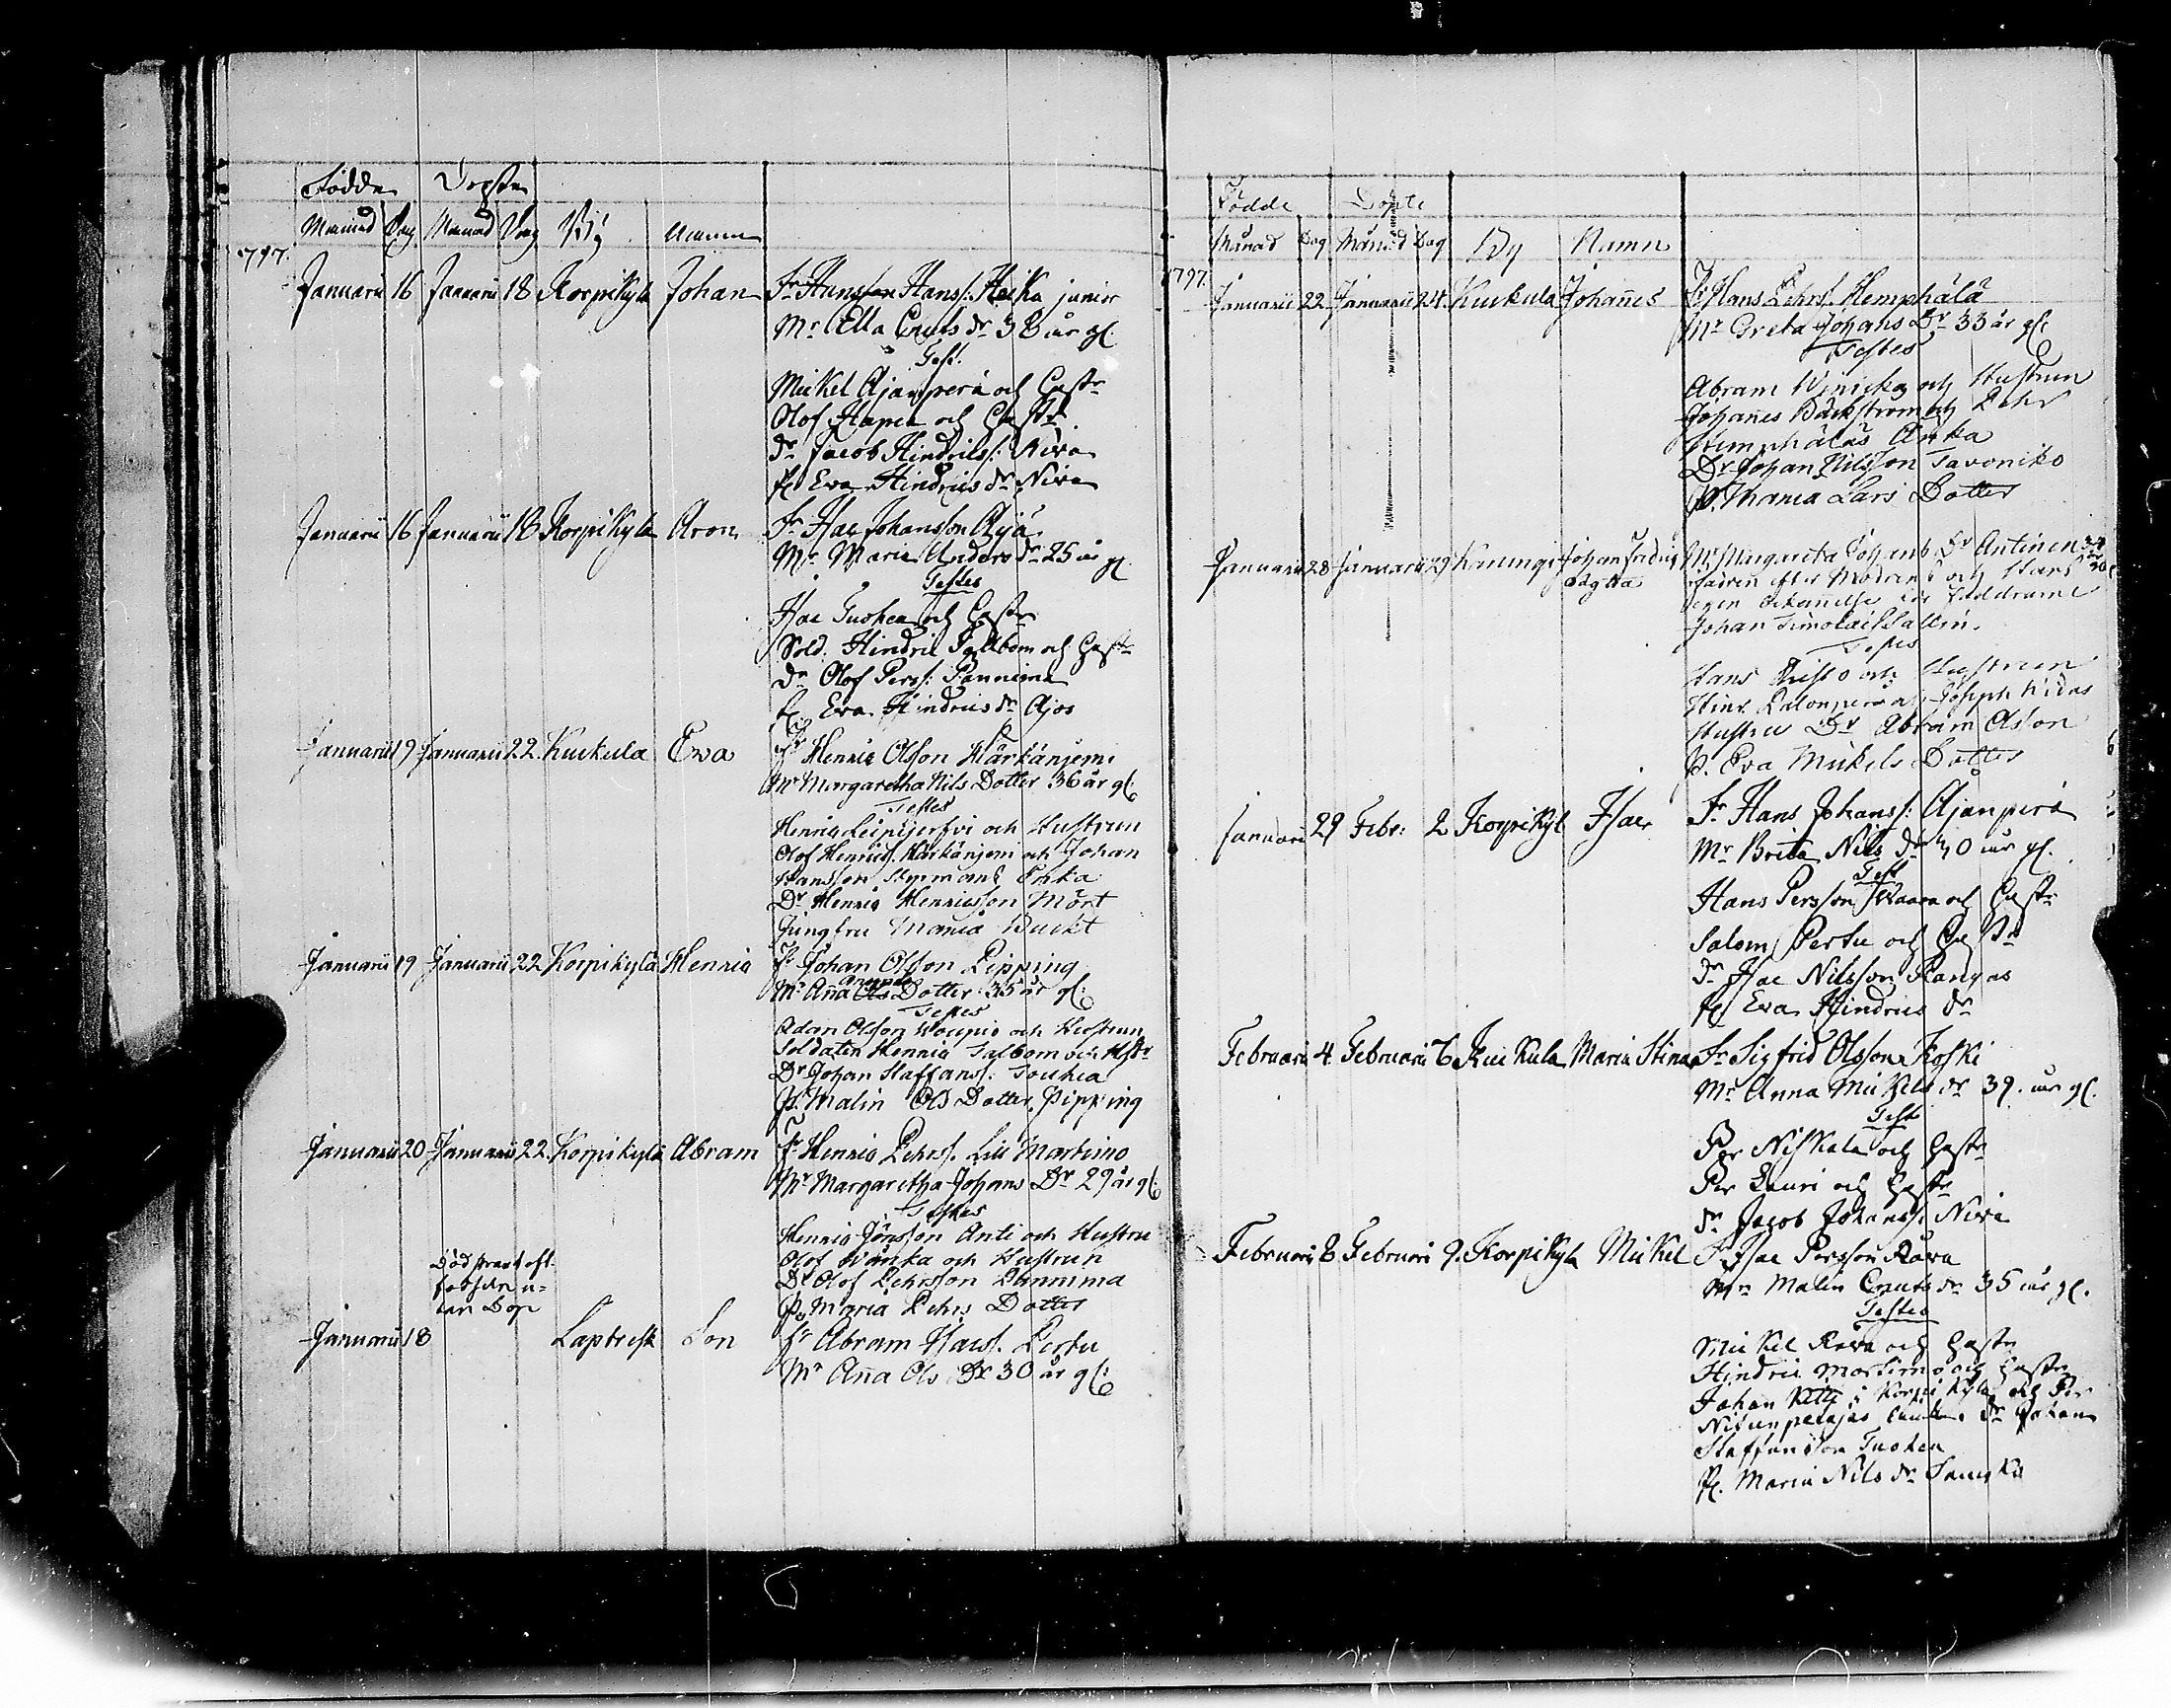 Födde Döpte
Månad Dag Månad Dag By Namn
1797.
Januarii 16 Januarii 18 Korpikylä Johan Fr Hansson Hanss: Heika junior
Mr Ella Cnuts dr 38 år gl.
Test.
Mickel Ajanperä och Hustr
Olof Hapea och Hustr
Dr Jacob Hindrikss: Niva
P. Eva Hindrics dr Niva
Januarii 16 Januarii 18 Korpikyla Aron Fr Isac Johansson Äijä
Mr Maria Anders dr 25 år gl.
Testes
Isac Tuohea och Hustr
Sold. Hindric Falkbom och Hustr
Dr Olof Perss: Pannima
P. Eva Hindrics dr Ajos
Januarii 19 Januarii 22 Kuckula Eva Fr Henric Olsson Härkänjemi
Mr Margaretha Nils Dotter 36 år gl:
Testes
Henric Leipijerfvi och Hustrun
Olof Henricss. Härkänjemi och Johan
Hansson Erika
Dr Henric Henricsson Mört
Jungfru Maria Buckt
Januarii 19 Januarii 22 Korpikylä Henric Fr Johan Olsson Pipping
Mr Anna Ols Dotter 35 år gl:
Testes
Adam Olsson och Hustrun
Soldaten Henric Falbom och Hstr
Dr Johan Staffanss: Touhea
P. Malin Ols Dotter Pipping
Januarii 20 Januarii 22. Korpikylä Abram Fr Henric Pehrss. Lill Martimo
Mr Margaretha Johans Dr 29 år gl:
Testes
Henric Jönsson Anti och Hustru
Olof Vänka och Hustrun
Dr Olof Pehrsson Pannima
P. Maria Pehrs Dotter
Död strax eft.
födseln u-
tan Dop
Januarii 18 Laptresk Son Fr Abram Isacss. Pertu
Mr Anna Ols Dr 30 år gl:
Födde Döpte
Månad Dag Månad Dag By Namn
1797.
Januarii 22 Januarii 24. Kuckula Johanes Fr Hans Pehrs. Hemphälä
Mr Greta Johans Dr 33 år gl:
Testes
Abram och Hustrun
Johanes Bäckström och Pehr
Hemphäläs Änka
Dr Johan Nilsson Tavoniko
P. Maria Lars Dotter
Januarii 28 Januarii 29 Karungi Johan Fredric oägta Mr Margareta Johans Dr Antinen 34 år
fadren efter Modrens och Hans
egen bekännelse är
Johan Sallin.
Testes
Hans Risto och Hustrun
Hinr. Palonperä och Joseph
Hustru Dr Abram Olsson
P. Eva Mickels Dotter
Januarii 29 Febr: 2 Korpikyl Isac Fr Hans Johanss: Ajanperä
Mr Brita Nils dr 40 år gl.
Test
Hans Persson och Hustr
Salom. Pertu och Hustr
Dr Isac Nilsson Kangas
P. Eva Hindrics dr
Februarii 4 Februarii 6 Kuckula Maria Stina Fr Sigfrid Olsson Koski
Mr Anna Mickels dr 39. år gl.
Test
Per Niskala och Hustr
Per Lauri och Hustr
dr Jacob Johanss: Niva
Februarii 8 Februarii 9. Korpikyla Mickel Fr Isac Persson Råva
Mr Malin Cnuts dr 35 år gl.
Testes
Mickel Rova och Hustr
Hindric Martimo och Hustr
Johan i Korpikyla och Per
Dr Johan
Staffansson Tuohea
P. Maria Nils dr